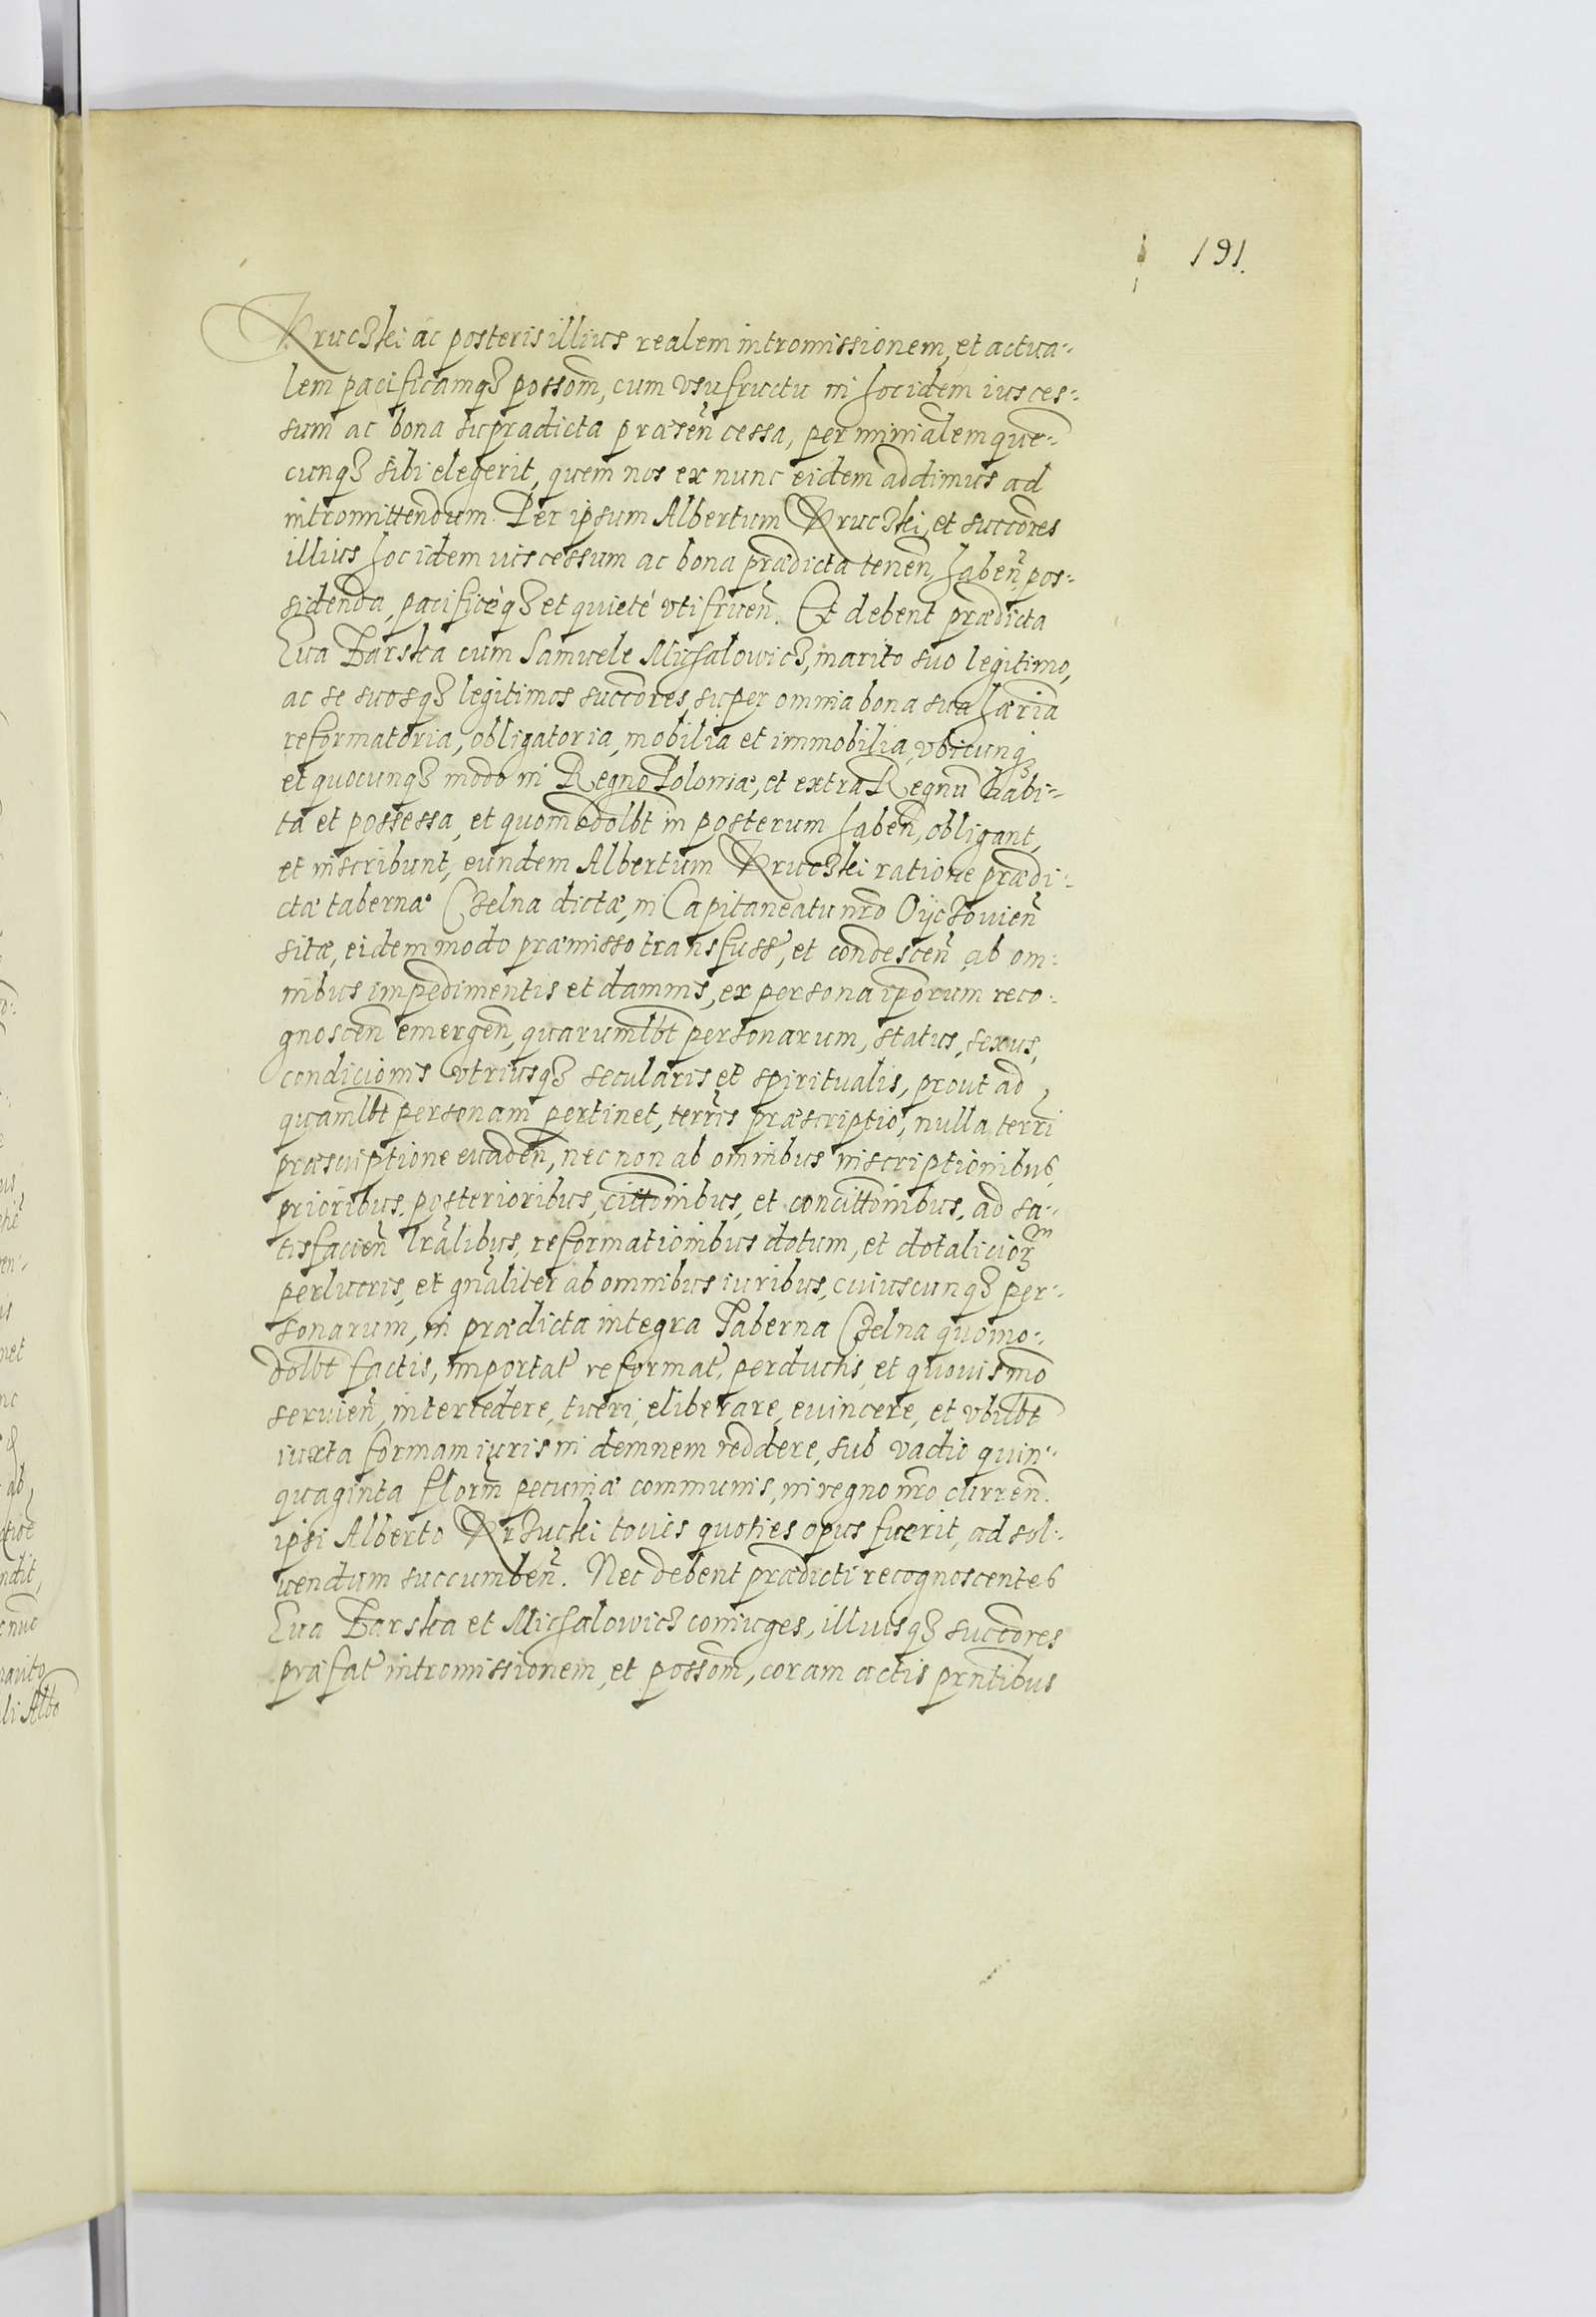 191.
Kruczki ac posteris illius realem intromissionem, et actua-
lem pacificamqz possom̃, cum vsufructu in hoc idem ius ces-
sum ac bona supradicta præsẽn cessa, per minialem que-
cunqz sibi elegerit, quem nos ex nunc eidem addimus ad
intromittendum. Per ipsum Albertum Kruczki, et succores
illius hoc idem ius cessum ac bona prædicta tenen̄, haben̄, pos-
sidenda, pacificèqz et quietè vti fruen̄. Et debent prædicta
Eua Barska cum Samuele Michalowicz, marito suo legitimo,
ac se suosqz legitimos succores, super omnia bona sua hæria
reformatoria, obligatoria, mobilia et immobilia, vbicunqz
et quocunqz modo in Regno Poloniæ, et extra Regnū habi-
ta et possessa, et quomodolbt in posterum haben̄, obligant,
et inscribunt, eundem Albertum Kruczki ratione prædi-
ctæ tabernæ Czelna dictæ, in Capitaneatu nr̄o Oyczouien̄
sitæ, eidem modo præmisso transfuss̃, et condescen̄, ab om-
nibus impedimentis et damnis, ex persona ip̄orum reco-
gnoscen̄ emergen̄, quarumlbt personarum, status, sexus,
condicionis vtriusqz secularis et spiritualis, prout ad
quamlbt personam pertinet, terr̄is præscriptio, nulla terr̄i
præscriptione euaden̄, nec non ab omnibus inscriptionibus,
prioribus, posterioribus, cittonibus, et concittonibus, ad sa-
tisfacien̄ lr̄alibus, reformationibus dotum, et dotalicior̄m
perlucris, et gn̄aliter ab omnibus iuribus, cuiuscunqz per-
sonarum, in prædicta integra Taberna Czelna quomo-
dolbt factis, importat̃ reformat̃, perductis, et quouismo
seruien̄, intercedere, tueri, eliberare, euincere, et vbilbt
iuxta formam iuris indemnem reddere, sub vadio quin-
quaginta florm̄ pecuniæ communis, in regno nr̄o curren̄.
ipsi Alberto Krzucki toties quoties opus fuerit, ad sol-
uendum succumben̄. Nec debent prædicti recognoscentes
Eua Barska et Michalowicz coniuges, illiusqz succores
præfat̃ intromissionem, et possom̃, coram actis prn̄tibus